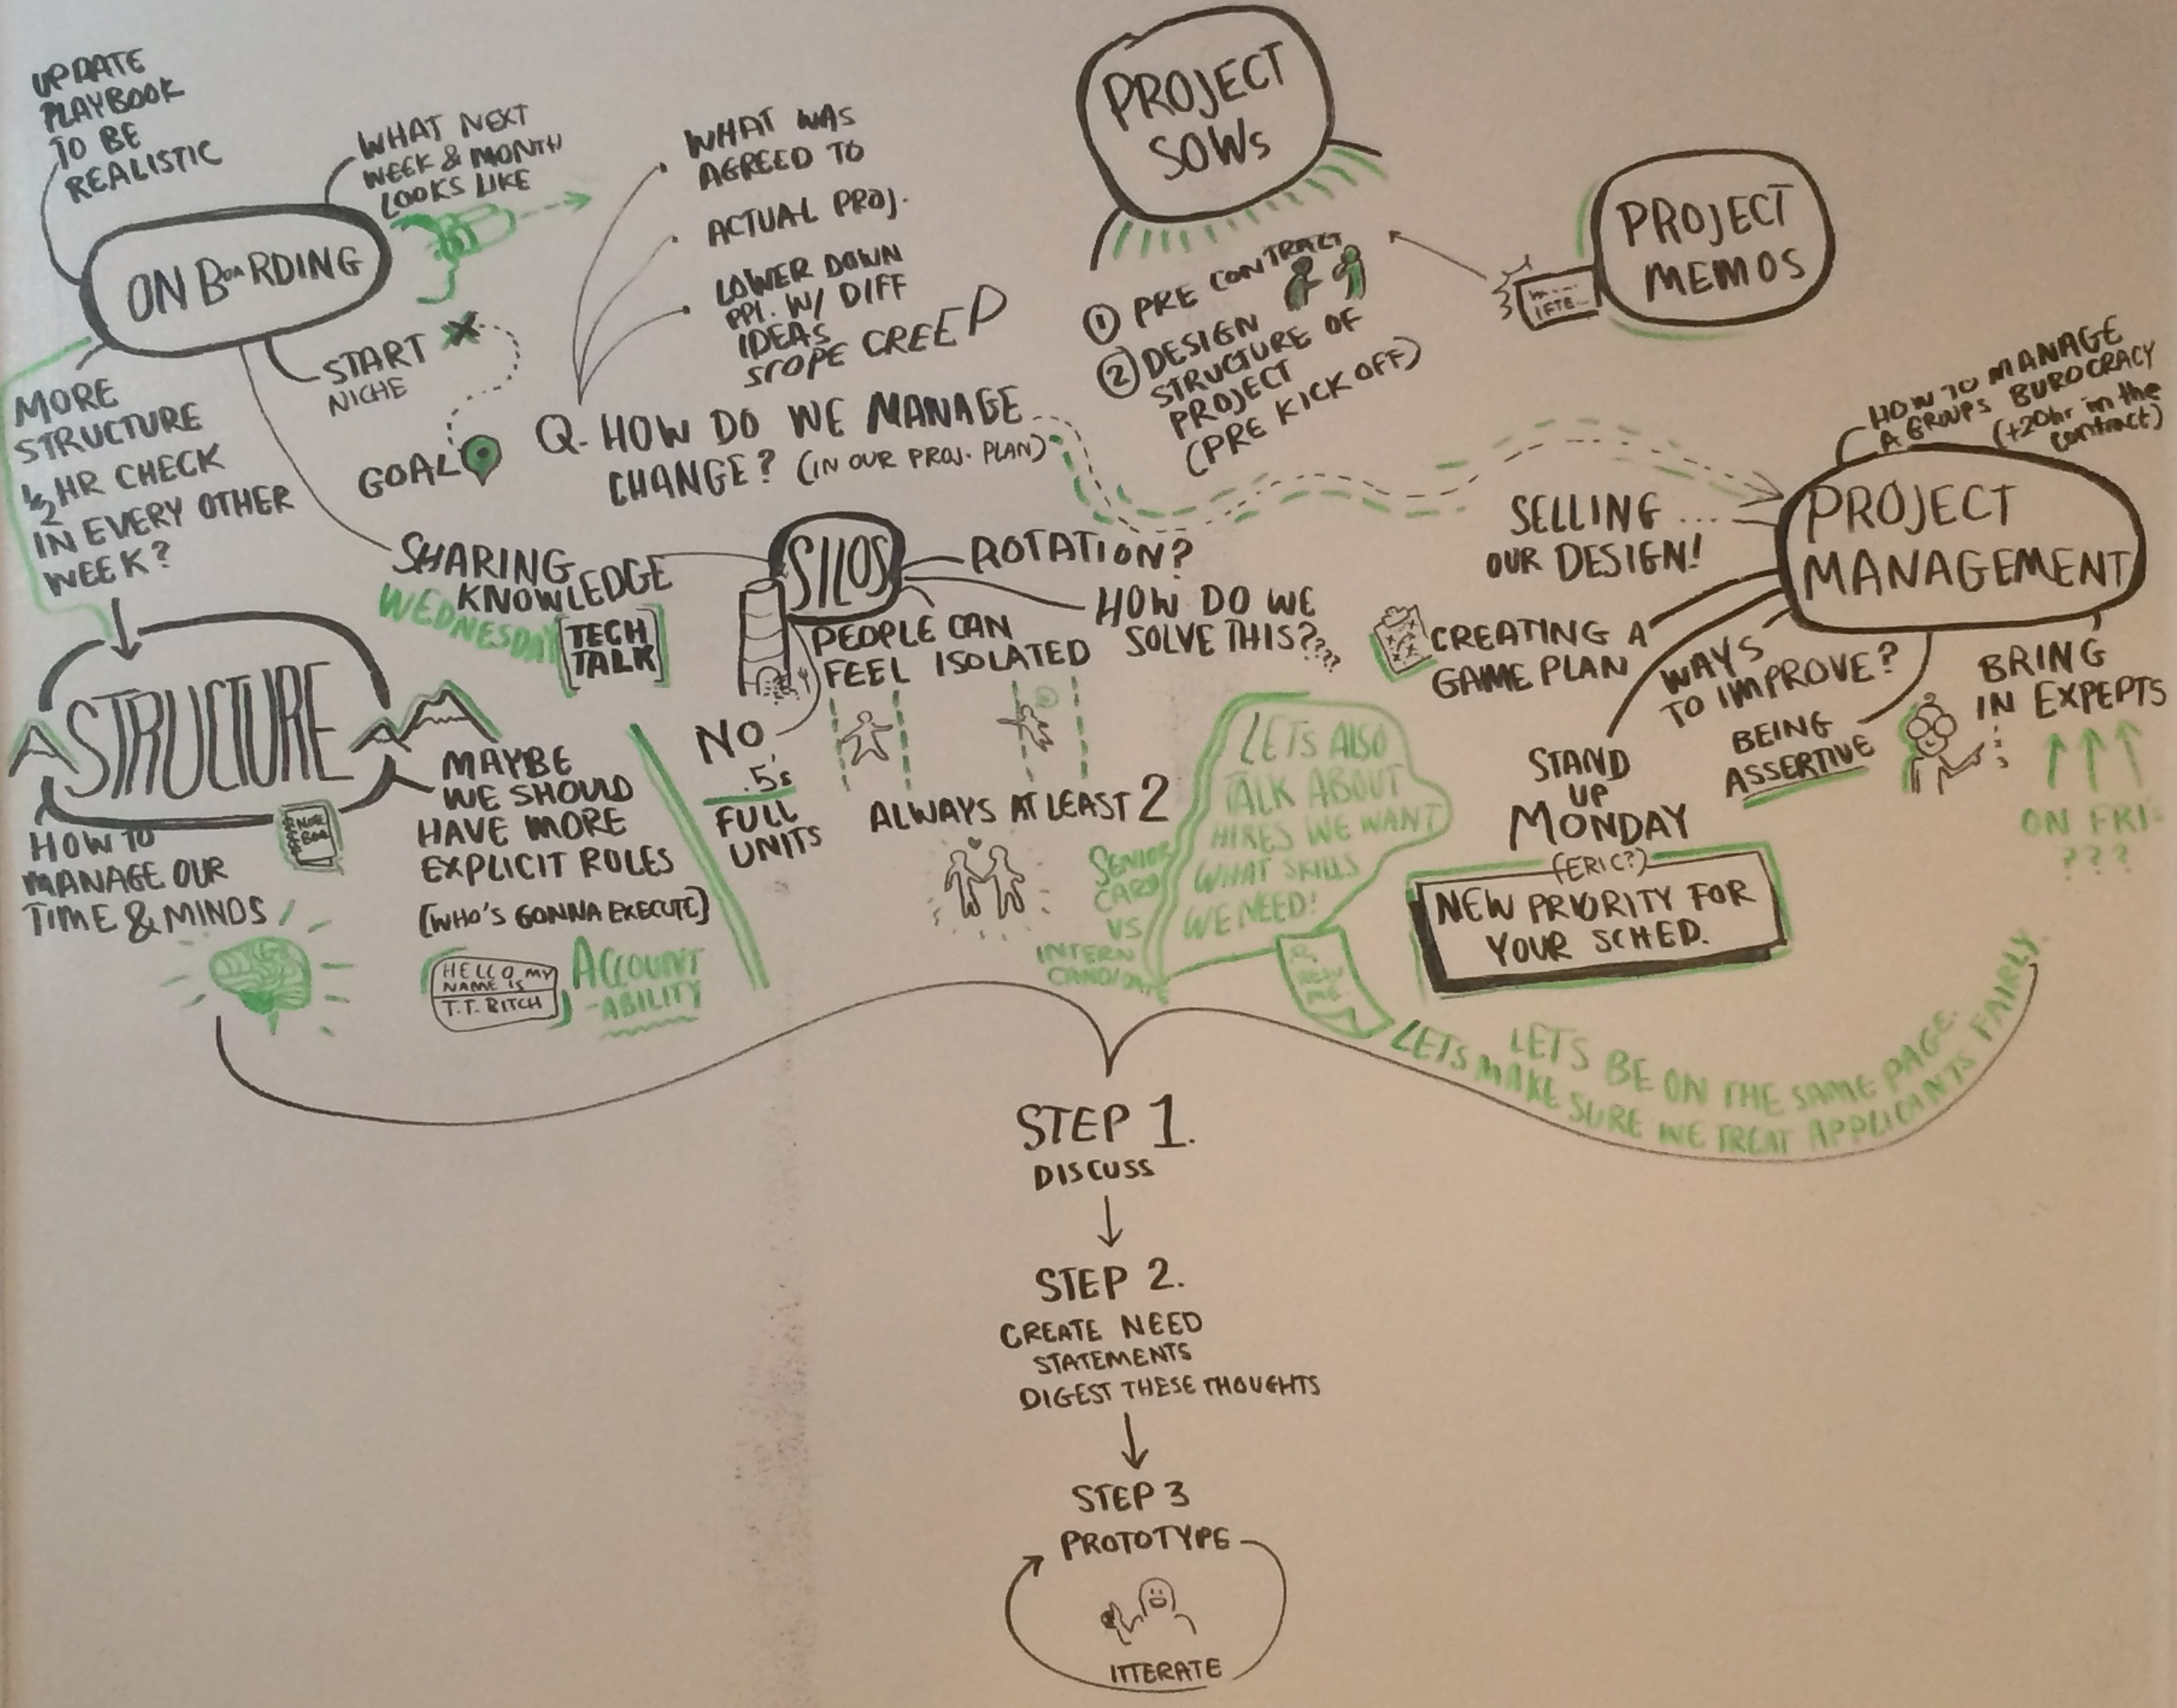 UPDATE
PLAYBOOK
TO BE
REALISTIC
WHAT NEXT
WEEK & MONTH
LOOKS LIKE
ONBOARDING
START
NICHE
GOAL
MORE
STRUCTURE
1/2 HR CHECK
IN EVERY OTHER
WEEK?
WHAT WAS
AGREED TO
ACTUAL PROJ.
LOWER DOWN
PPL. W/ DIFF
IDEAS
SCOPE CREEP
Q- HOW DO WE MANAGE
CHANGE? (IN OUR PROJ. PLAN)
PROJECT
SOWs
① PRE CONTRACT
② DESIGN
STRUCTURE OF
PROJECT
(PRE KICK OFF)
PROJECT
MEMOS
IFTF
HOW TO MANAGE
A GROUPS BUROCRACY
(+20hr in the
contract)
PROJECT
MANAGEMENT
SELLING ...
OUR DESIGN!
CREATING A
GAME PLAN
WAYS
TO IMPROVE?
BEING
ASSERTIVE
BRING
IN EXPERTS
ON FRI
???
STAND
UP
MONDAY
(ERIC?)
NEW PRIORITY FOR
YOUR SCHED.
SHARING
KNOWLEDGE
WEDNESDAY
[TECH
TALK]
SILOS
ROTATION?
HOW DO WE
SOLVE THIS????
PEOPLE CAN
FEEL ISOLATED
NO
.5's
FULL
UNITS
ALWAYS AT LEAST 2
STRUCTURE
HOW TO
MANAGE OUR
TIME & MINDS
MAYBE
WE SHOULD
HAVE MORE
EXPLICIT ROLES
(WHO'S GONNA EXECUTE)
HELLO MY
NAME IS
T.T. BITCH
ACCOUNT
-ABILITY
LETS ALSO
TALK ABOUT
HIRES WE WANT
WHAT SKILLS
WE NEED!
SENIOR
CARD
VS
INTERN
CANDIDATE
LETS BE ON THE SAME PAGE.
LETS MAKE SURE WE TREAT APPLICANTS FAIRLY
STEP 1.
DISCUSS
STEP 2.
CREATE NEED
STATEMENTS
DIGEST THESE THOUGHTS
STEP 3
PROTOTYPE
ITTERATE